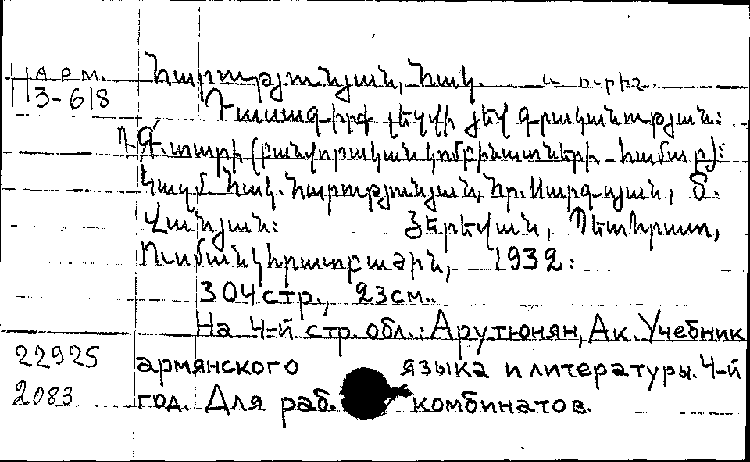 АРМ.
3-618
Հարությունյան, Հակ.
Դասագիրք լեզվի յեվ գրականության:
Գ. տարի (բանվորական կոմբինատների համար):
Կազմ. Հակ. Հարությունյան, Խր. Սարգսյան, Ծ.
Վանյան: Յերեվան, Պետհրատ,
Ուսմանկհրատբաժին, 1932:
304 стр., 23 см.
На 4-й стр. обл.: Арутюнян, Ак. Учебник
22925 армянского языка и литературы. 4-й
2083 год. Для раб. комбинатов.